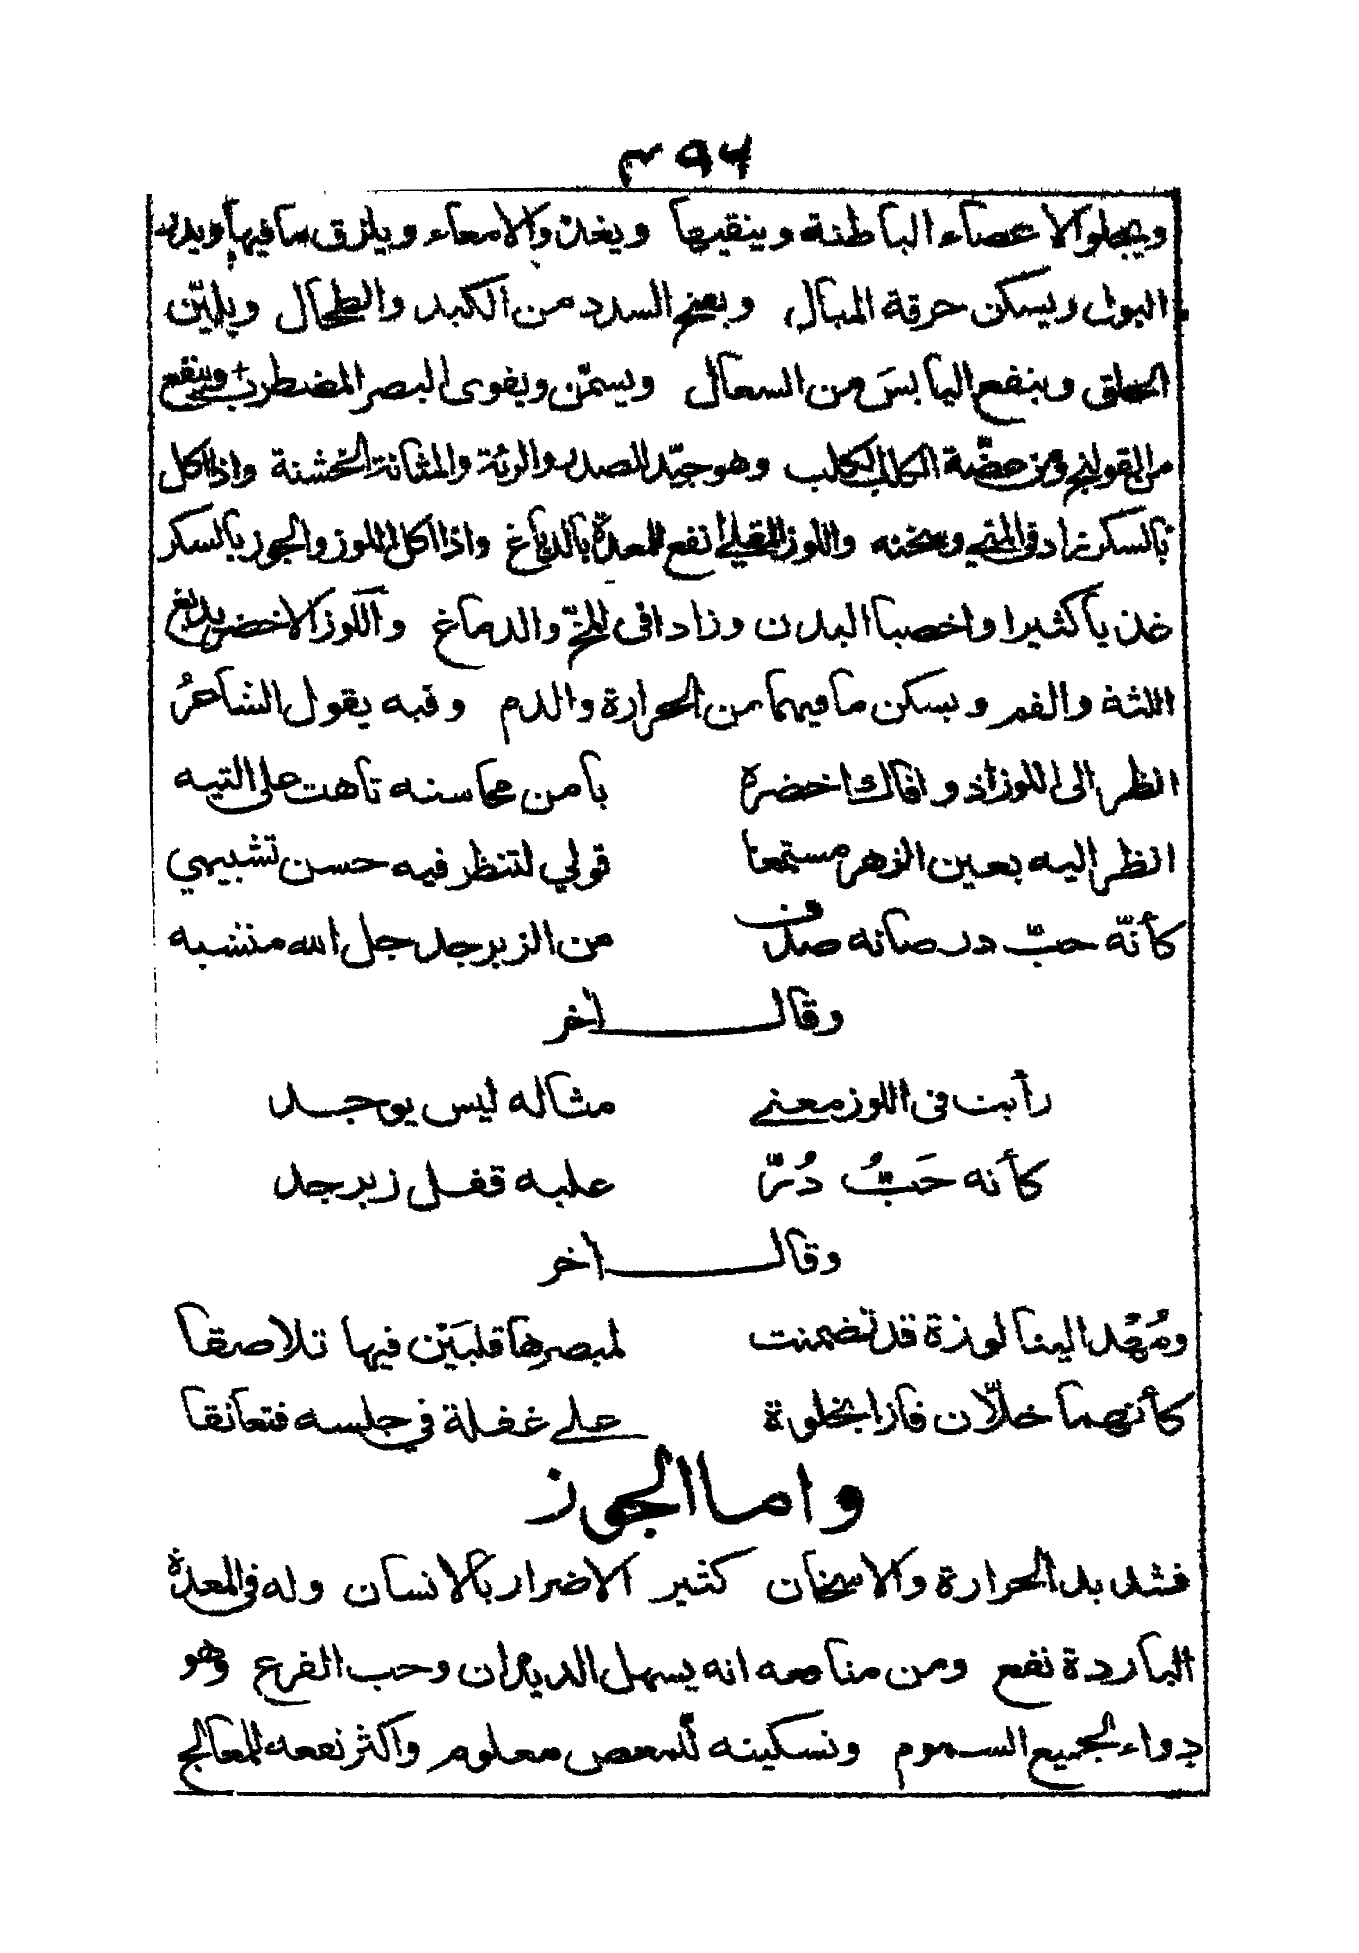 ٣٩٦
ويجلو الاعضاء الباطنة وينقيها ويغذ والامعاء ويلزق ما فيها ويدر
البول ويسكن حرقة المبال ويفتح السدد من الكبد والطحال ويليّن
الحلق وينفع اليابسَ من السعال ويسمّن ويقوى البصر المضطرب وينفع
من القولنج ومن عضّة الكلب الكلب وهو جيّد للصدر والرئة والمثانة الخشنة واذا اكل
بالسكر زاد في المني وسخنه واللوز المقلي انفع للمعدة بالدباغ واذا اكل اللوز والجوز بالسكر
غذيا كثيرا واخصبا البدن وزادا في المخّ والدماغ واللوز الاخضر يدبغ
اللثة والفم ويسكن ما فيهما من الحرارة والدم وفيه يقول الشاعرُ
انظر الى اللوز اذ وافاك اخضرة يا من محاسنه تاهت على التيه
انظر اليه بعين الزهر مستمعا قولي لتنظر فيه حسن تشبيهي
كأنّه حبّ در صانه صدف من الزبرجد جل الله منشيه
وقال اخر
رأيت في اللوز معنى مثاله ليس يوجد
كأنه حَبُّ دُرّ عليه قفل زبرجد
وقال اخر
ومُهْد الينا لوزة قد تضمنت لمبصرها قلبَيْن فيها تلاصقا
كأنهما خلّان فازا بخلوة على غفلة في جلسه فتعانقا
واما الجوز
فشديد الحرارة والاسخان كثير الاضرار بالانسان وله في المعدة
الباردة نفع ومن منافعه انه يسهل الديدان وحب القرع وهو
دواء لجميع السموم وتسكينه للمغص معلوم واكثر نفعه للمعالج